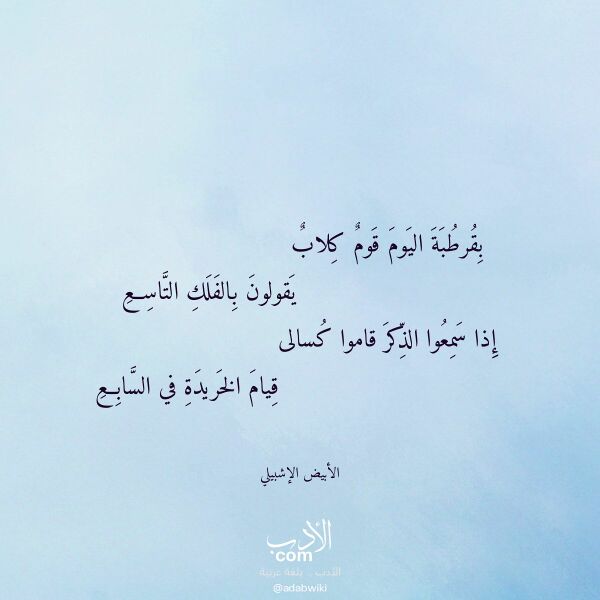 بِقُرطُبَةَ اليَومَ قَومٌ كِلابٌ
يَقولونَ بِالفَلَكِ التَّاسِعِ
إِذا سَمِعُوا الذِّكرَ قاموا كُسالى
قِيامَ الخَريدَةِ في السَّابِعِ
الأبيض الإشبيلي
الأدب
com
الأدب .. بلغة عربية
@adabwiki